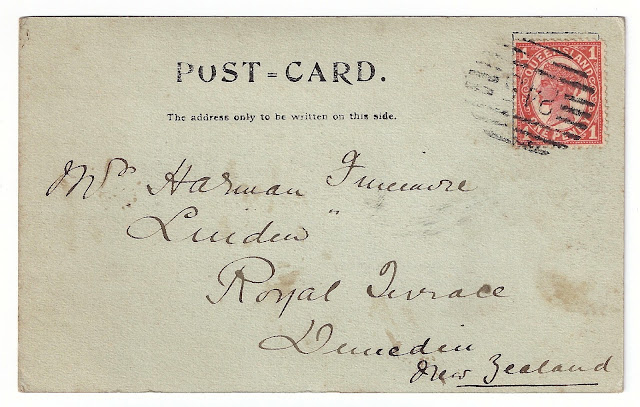 POST=CARD.
The address only to be written on this side.
QUEENSLAND
1 1
ONE PENNY
Mrs Harman
"Linden"
Royal Terrace
Dunedin
New Zealand